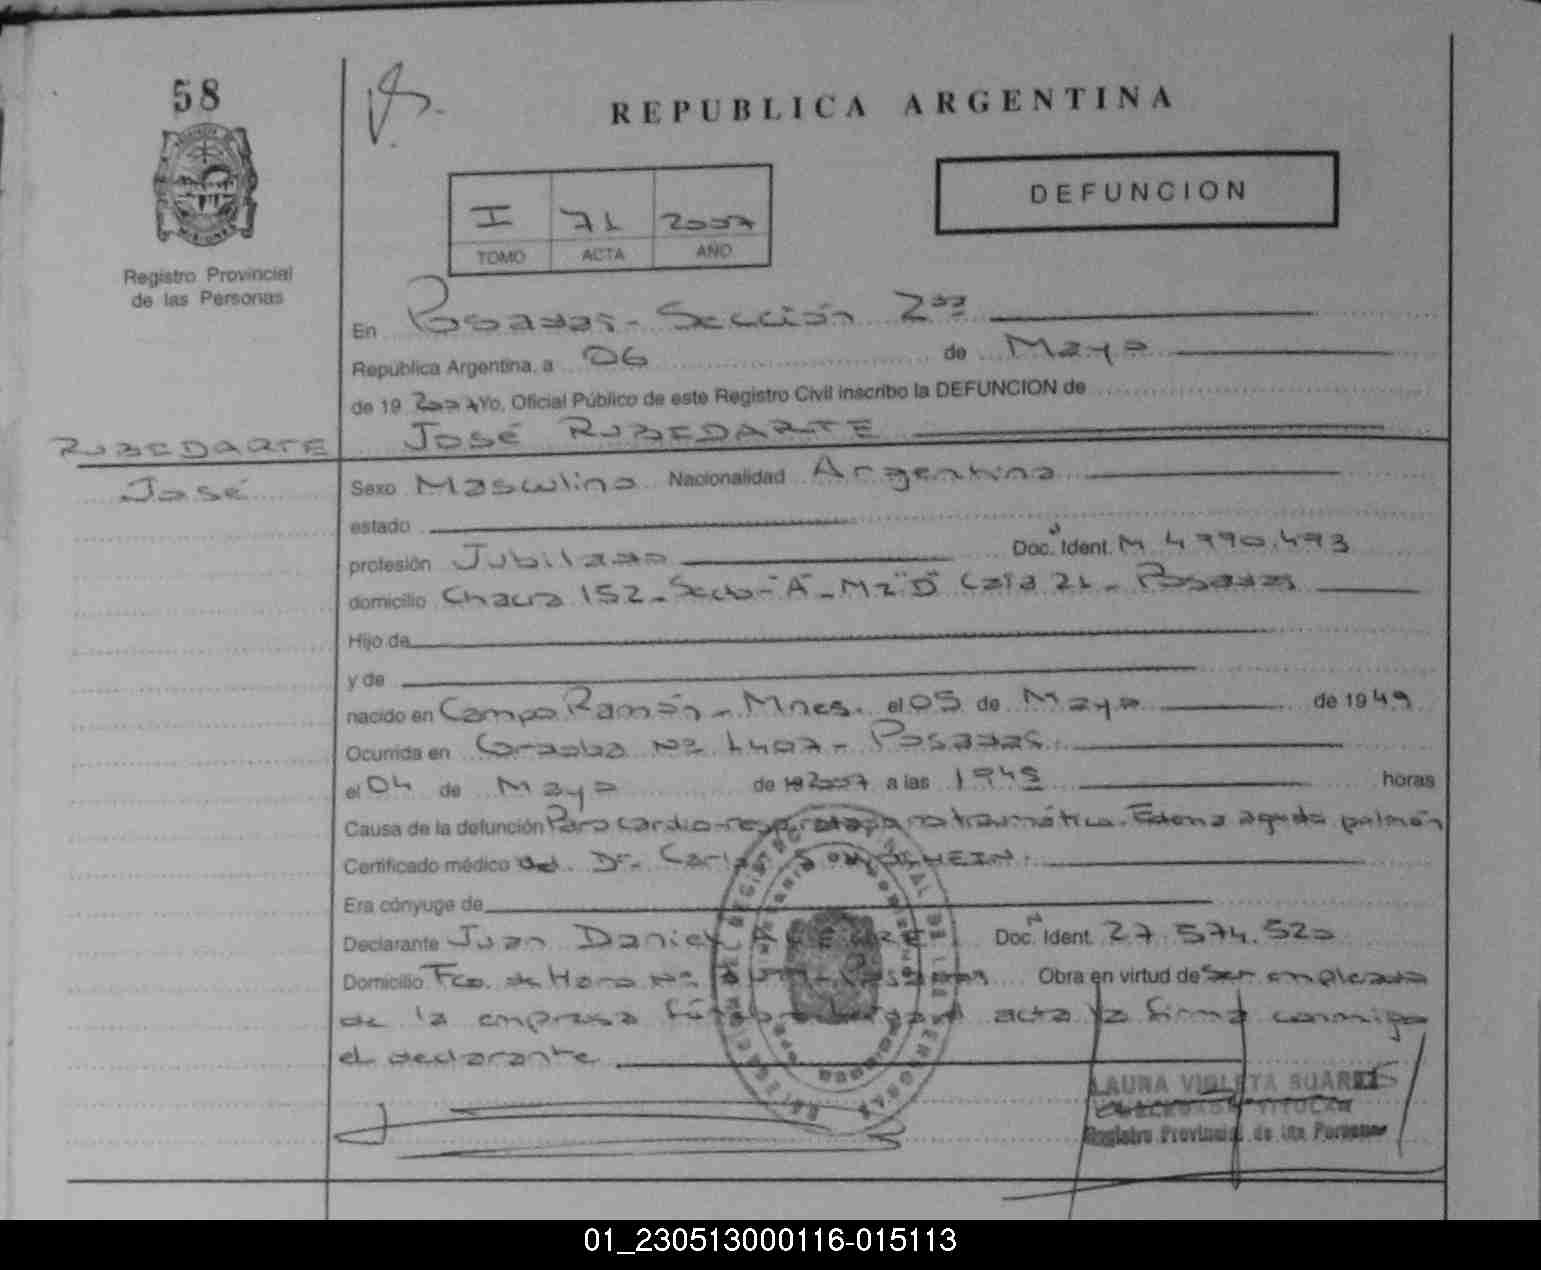 58
REPUBLICA ARGENTINA
DEFUNCION
I 71 2007
TOMO ACTA AÑO
Registro Provincial
de las Personas
En Posadas - Sección 2da
República Argentina, a 06 de Mayo
de 19 2007 Yo, Oficial Público de este Registro Civil inscribo la DEFUNCION de
RUBEDARTE José RUBEDARTE
José
Sexo Masculino Nacionalidad Argentina
estado
profesión Jubilado Doc. Ident. M 4990.493
domicilio Chacra 152 - Secto "A" - Mz "D" Casa 21 - Posadas
Hijo de
y de
nacido en Campo Ramón - Mnes. el 05 de Mayo de 1949
Ocurrida en Cordoba Nº 1407 - Posadas
el 04 de Mayo de 19 2007 a las 1945 horas
Causa de la defunción Paro cardio-respiratorio no traumático. Edema agudo pulmón
Certificado médico del Dr. Carlos
Era cónyuge de
Declarante Juan Daniel Doc. Ident. 27.574.520
Domicilio Fco. de Haro Nº Posadas Obra en virtud de ser empleado
de la empresa acta la firma conmigo
el declarante
LAURA VIOLETA SUAREZ
DELEGADA TITULAR
Registro Provincial de las Personas
01_230513000116-015113